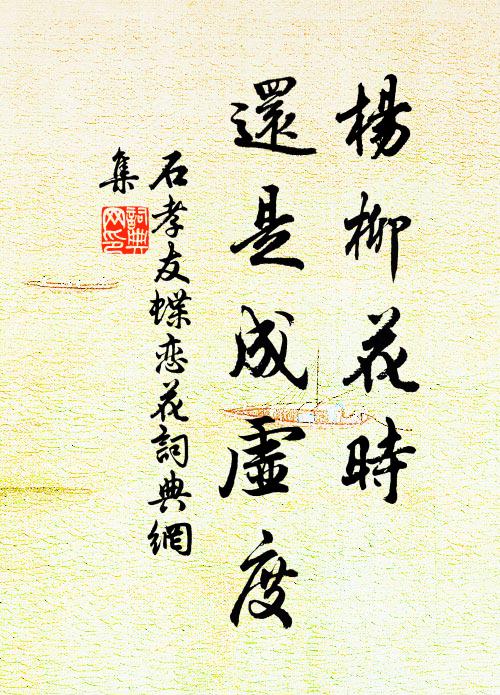 楊柳花時
還是成虛度
石孝友蝶恋花詞典網
集
詞典
网印